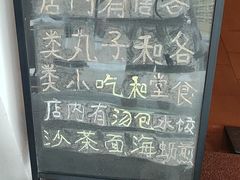 店内有
类丸子和各
类小吃和堂食
店内有汤包水饺
沙茶面海蛎煎